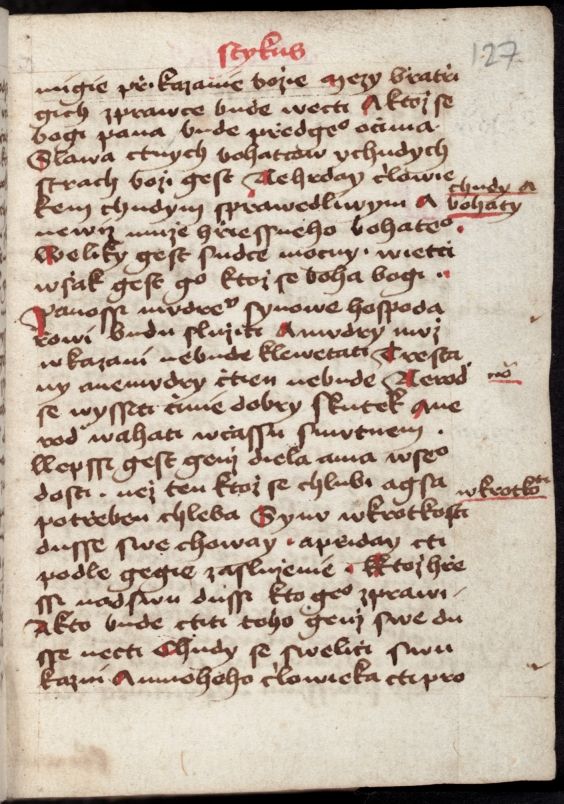 127
mugie przikazanie bozie Mezy bratrzi
gich zprawce bude wecti A ktoz se
bogi pana bude przedgeº oczima
Slawa ctnych bohatcow ychudych
strach bozi gest Nehrday czlowie
kem chudym sprawedliwym A
chudy A
bohaty
newiz muze hrziessneho bohateº.
Weliky gest sudce mocny. wietci
wsak gest go ktoz se boha bogi.
Panossi mudreº synowe hospoda
rowi budu sluziti A mudry muz
w kazani nebude klewetati Tresta
ny anemudry cztien nebude Nerod
se wyssiti czinie dobry skutek Ane
rod wahati wczassu smutnem.
Llepssi gest genz diela ama wseº
dosti. nez ten ktoz se chlubi agsa
potrzeben chleba Synu wkrotkosti
dusse swe choway. aprziday cti
podle gegie zasluzenie. Ktoz hrze
ssi nadswu dussi kto geº zprawi.
A kto bude ctiti toho genz swe du
sse necti Chudy se sweliti swu
kazni A mnoheho czlowieka cti pro